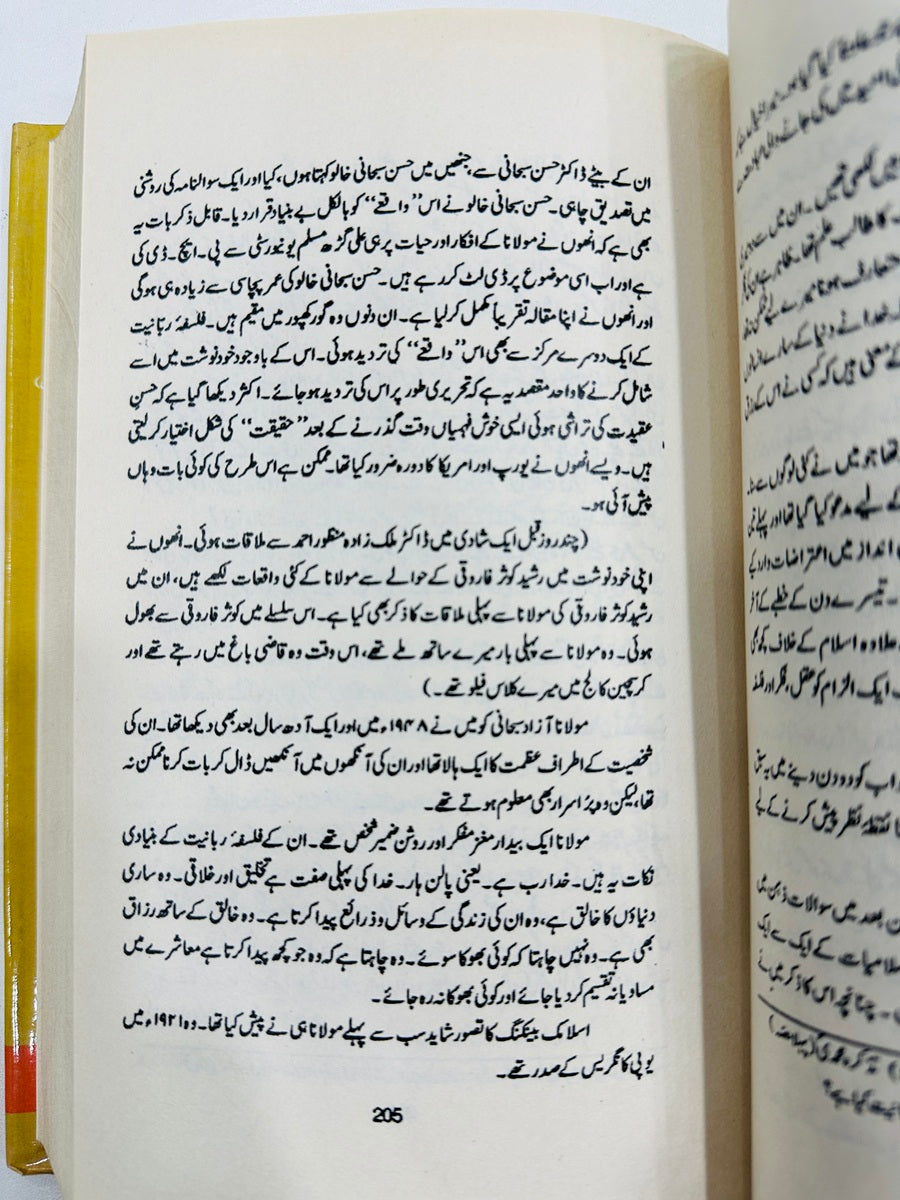 ان کے بیٹے ڈاکٹر حسن سبحانی سے، جنھیں میں حسن سبحانی خالو کہتا ہوں، کیا اور ایک سوالنامہ کی روشنی
میں تصدیق چاہی۔ حسن سبحانی خالو نے اس ”واقعے“ کو بالکل بے بنیاد قرار دیا۔ قابل ذکر بات یہ
بھی ہے کہ انھوں نے مولانا کے افکار اور حیات پر ہی علی گڑھ مسلم یونیورسٹی سے پی۔ ایچ۔ ڈی کی
ہے اور اب اسی موضوع پر ڈی لٹ کر رہے ہیں۔ حسن سبحانی خالو کی عمر پچاسی سے زیادہ ہی ہوگی
اور انھوں نے اپنا مقالہ تقریباً مکمل کر لیا ہے۔ ان دنوں وہ گورکھپور میں مقیم ہیں۔ فلسفۂ ربّانیت
کے ایک دوسرے مرکز سے بھی اس ”واقعے“ کی تردید ہوئی۔ اس کے باوجود خودنوشت میں اسے
شامل کرنے کا واحد مقصد یہ ہے کہ تحریری طور پر اس کی تردید ہو جائے۔ اکثر دیکھا گیا ہے کہ حسنِ
عقیدت کی تراشی ہوئی ایسی خوش فہمیاں وقت گذرنے کے بعد ”حقیقت“ کی شکل اختیار کر لیتی
ہیں۔ ویسے انھوں نے یورپ اور امریکا کا دورہ ضرور کیا تھا۔ ممکن ہے اس طرح کی کوئی بات وہاں
پیش آئی ہو۔
(چند روز قبل ایک شادی میں ڈاکٹر ملک زادہ منظور احمد سے ملاقات ہوئی۔ انھوں نے
اپنی خودنوشت میں رشید کوثر فاروقی کے حوالے سے مولانا کے کئی واقعات لکھے ہیں، ان میں
رشید کوثر فاروقی کی مولانا سے پہلی ملاقات کا ذکر بھی کیا ہے۔ اس سلسلے میں کوثر فاروقی سے بھول
ہوئی۔ وہ مولانا سے پہلی بار میرے ساتھ ملے تھے، اس وقت وہ قاضی باغ میں رہتے تھے اور
کرسچین کالج میں میرے کلاس فیلو تھے۔)
مولانا آزاد سبحانی کو میں نے ۱۹۴۸ء میں اور ایک آدھ سال بعد بھی دیکھا تھا۔ ان کی
شخصیت کے اطراف عظمت کا ایک ہالا تھا اور ان کی آنکھوں میں آنکھیں ڈال کر بات کرنا ممکن نہ
تھا، لیکن وہ پر اسرار بھی معلوم ہوتے تھے۔
مولانا ایک بیدار مغز مفکر اور روشن ضمیر شخص تھے۔ ان کے فلسفۂ ربانیت کے بنیادی
نکات یہ ہیں۔ خدا رب ہے۔ یعنی پالن ہار۔ خدا کی پہلی صفت ہے تخلیق اور خلاقی۔ وہ ساری
دنیاؤں کا خالق ہے، وہ ان کی زندگی کے وسائل و ذرائع پیدا کرتا ہے۔ وہ خالق کے ساتھ رزاق
بھی ہے۔ وہ نہیں چاہتا کہ کوئی بھوکا سوئے۔ وہ چاہتا ہے کہ وہ جو کچھ پیدا کرتا ہے معاشرے میں
مساویانہ تقسیم کر دیا جائے اور کوئی بھوکا نہ رہ جائے۔
اسلامک بینکنگ کا تصور شاید سب سے پہلے مولانا ہی نے پیش کیا تھا۔ وہ ۱۹۲۱ء میں
یوپی کانگریس کے صدر تھے۔
205
میں لکھی تھیں۔ ان میں سے
کا طالب علم تھا۔ ظاہر ہے
متعارف ہونا میرے لیے
خدا نے دنیا کے سارے
کے معنی ہیں کہ کسی نے اس کے
تھا جو میں نے کئی لوگوں سے سنا۔
کے لیے مدعو کیا گیا تھا اور پہلے
انداز میں اعتراضات وارد کیے
۔ تیسرے دن کے خطبے کے آخر
علاوہ اسلام کے خلاف کچھ بھی
ایک الزام کو عقل، فکر اور فلسفہ
اب کو دو دن دینے میں یہ
نقطۂ نظر پیش کرنے کے لیے
بعد میں سوالات ذہن میں
اسلامیات کے ایک سے ایک
۔ چنانچہ اس کا ذکر میں نے